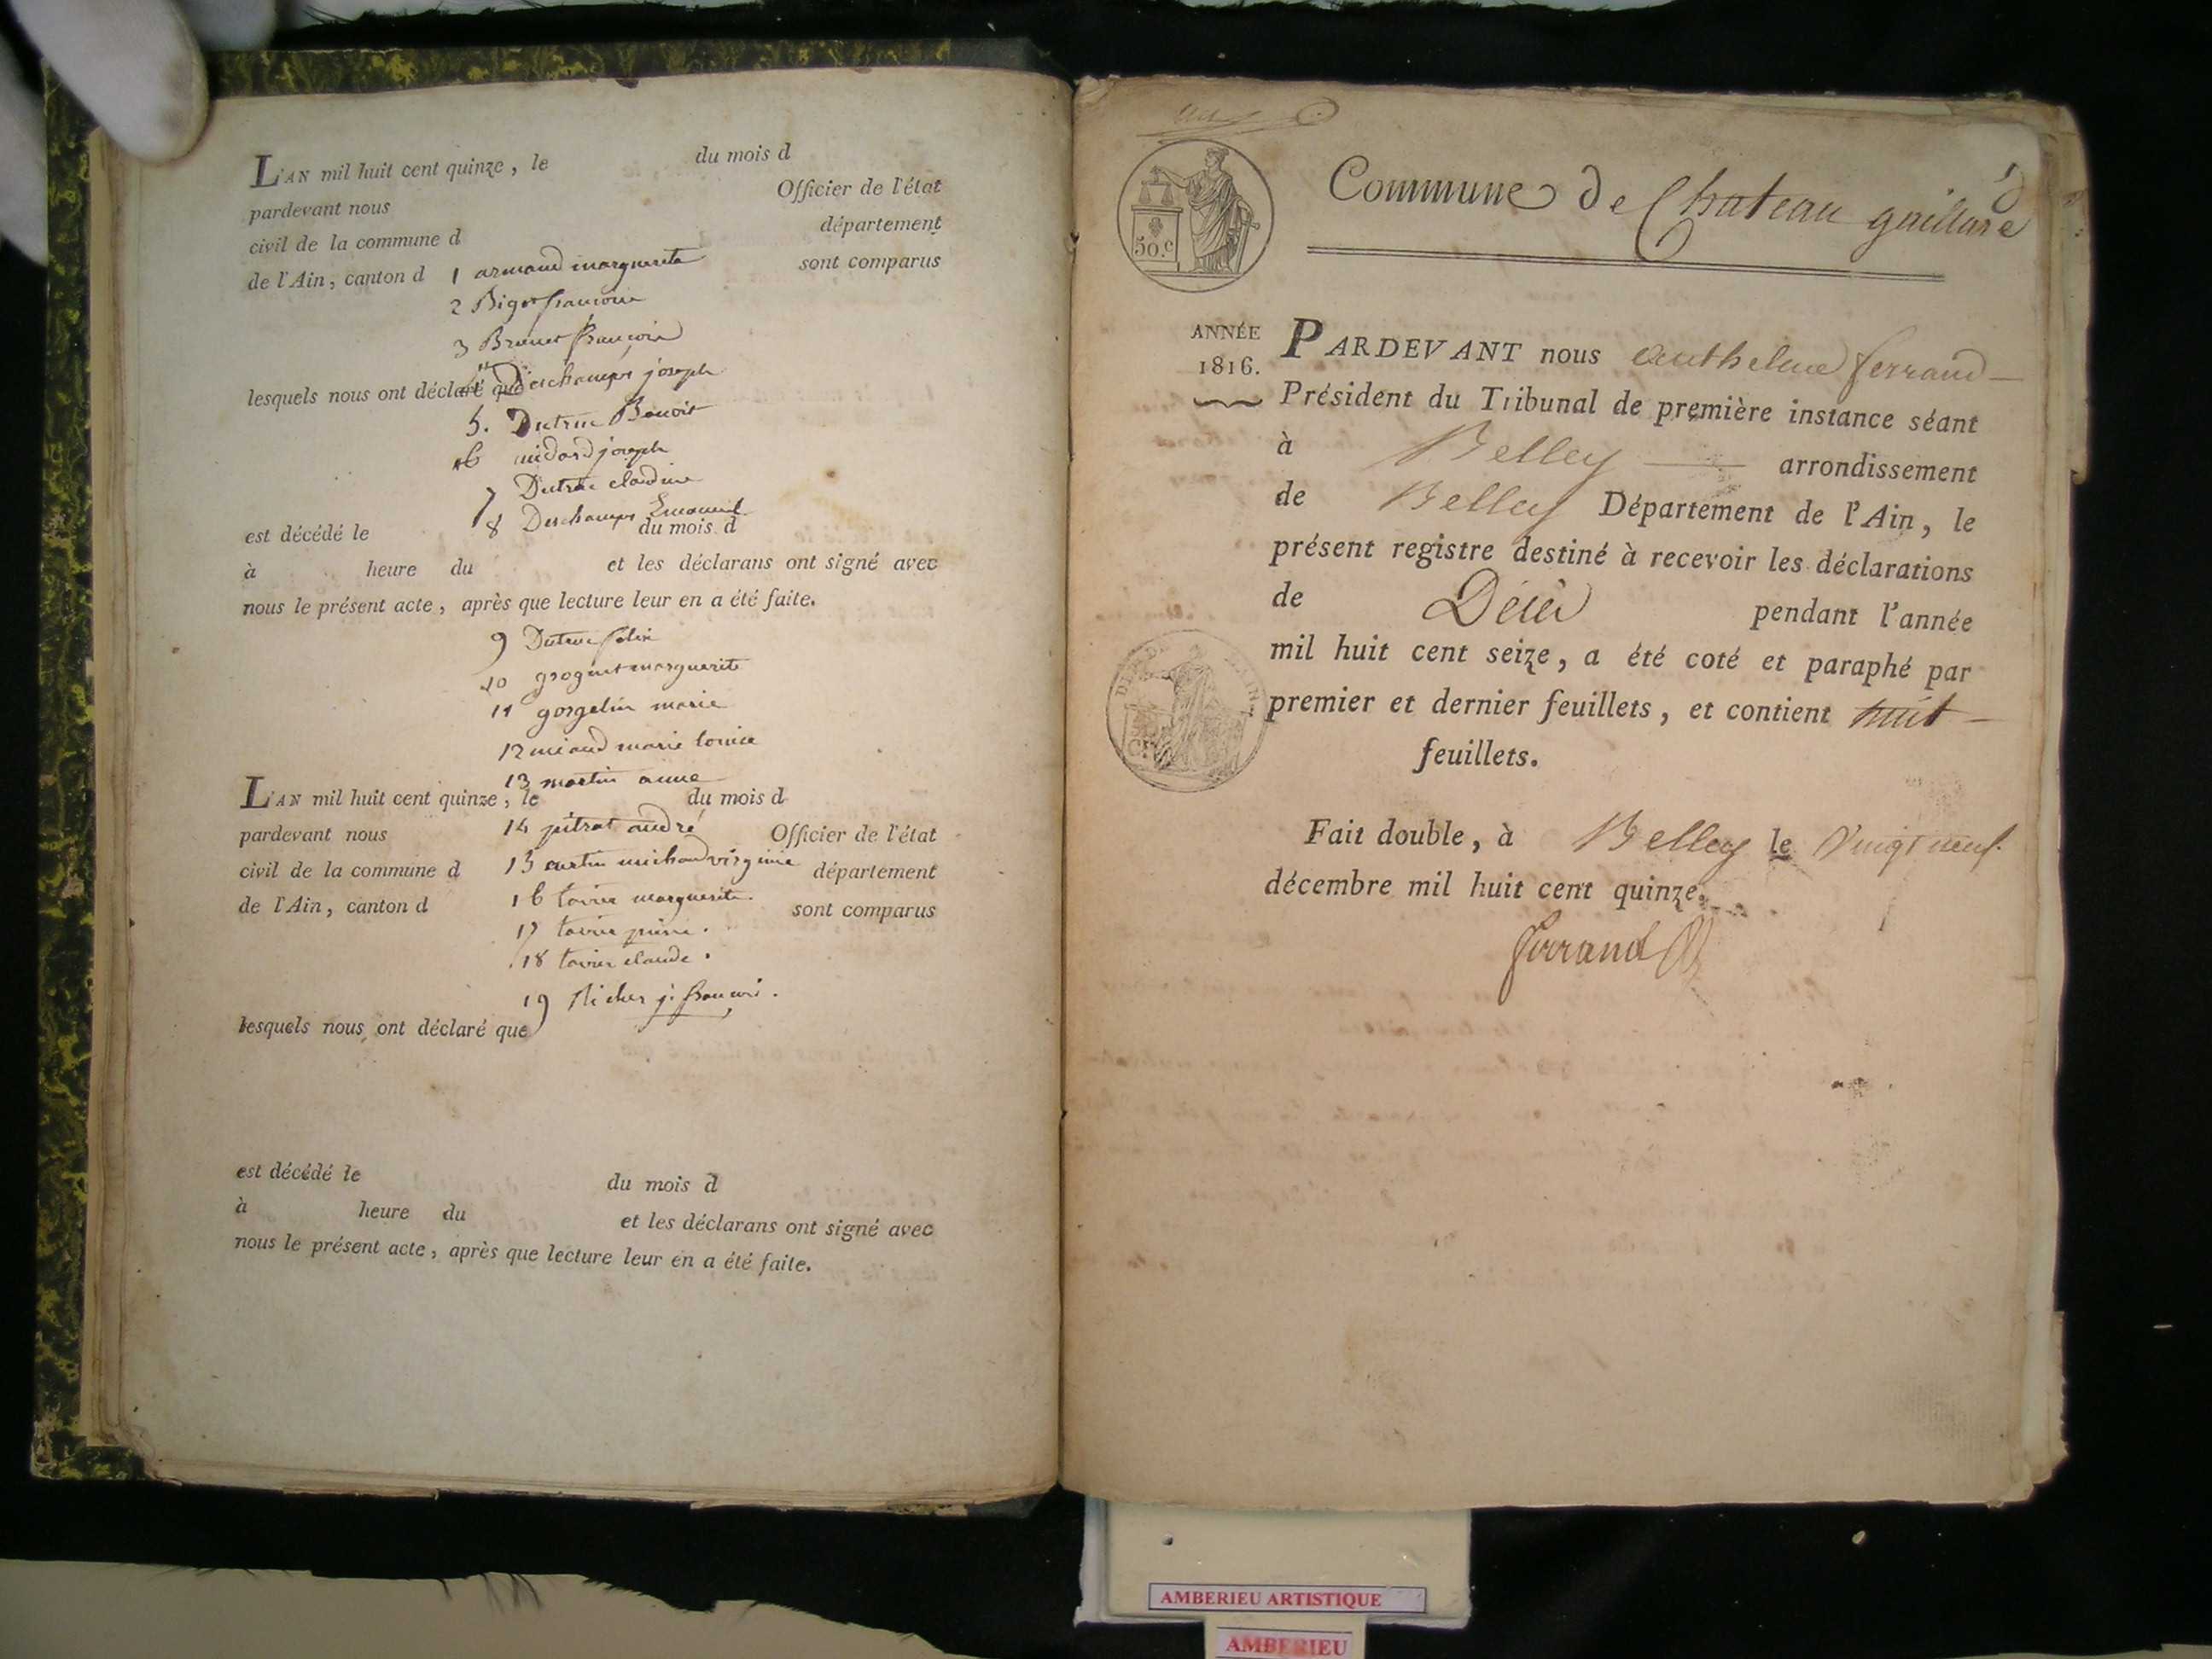 L'AN mil huit cent quinze, le du mois d
pardevant nous Officier de l'état
civil de la commune d département
de l'Ain, canton d sont comparus
1 armand marguerite
2 Bigot francoise
3 Brunet françois
lesquels nous ont déclaré que
4 Deschamps joseph
5. Dutruc Benoit
6 joseph
7 Dutruc claudine
8 Deschamps
est décédé le du mois d
à heure du et les déclarans ont signé avec
nous le présent acte, après que lecture leur en a été faite.
9 Dutruc
10 marguerite
11 gorgelin marie
12 miand marie louise
13 martin anne
L'AN mil huit cent quinze, le du mois d
pardevant nous Officier de l'état
14 pitrat andré
civil de la commune d département
15 michaud virginie
de l'Ain, canton d sont comparus
16 tavier marguerite.
17 tavier
18 tavier claude.
19 j. francois.
lesquels nous ont déclaré que
est décédé le du mois d
à heure du et les déclarans ont signé avec
nous le présent acte, après que lecture leur en a été faite.
Commune de Chateau gaillard
50.c
ANNÉE
1816.
PARDEVANT nous anthelme ferrand
Président du Tribunal de première instance séant
à Belley arrondissement
de Belley Département de l'Ain, le
présent registre destiné à recevoir les déclarations
de Décès pendant l'année
mil huit cent seize, a été coté et paraphé par
premier et dernier feuillets, et contient huit
feuillets.
Fait double, à Belley le vingt neuf
décembre mil huit cent quinze.
ferrand
AMBERIEU ARTISTIQUE
AMBERIEU